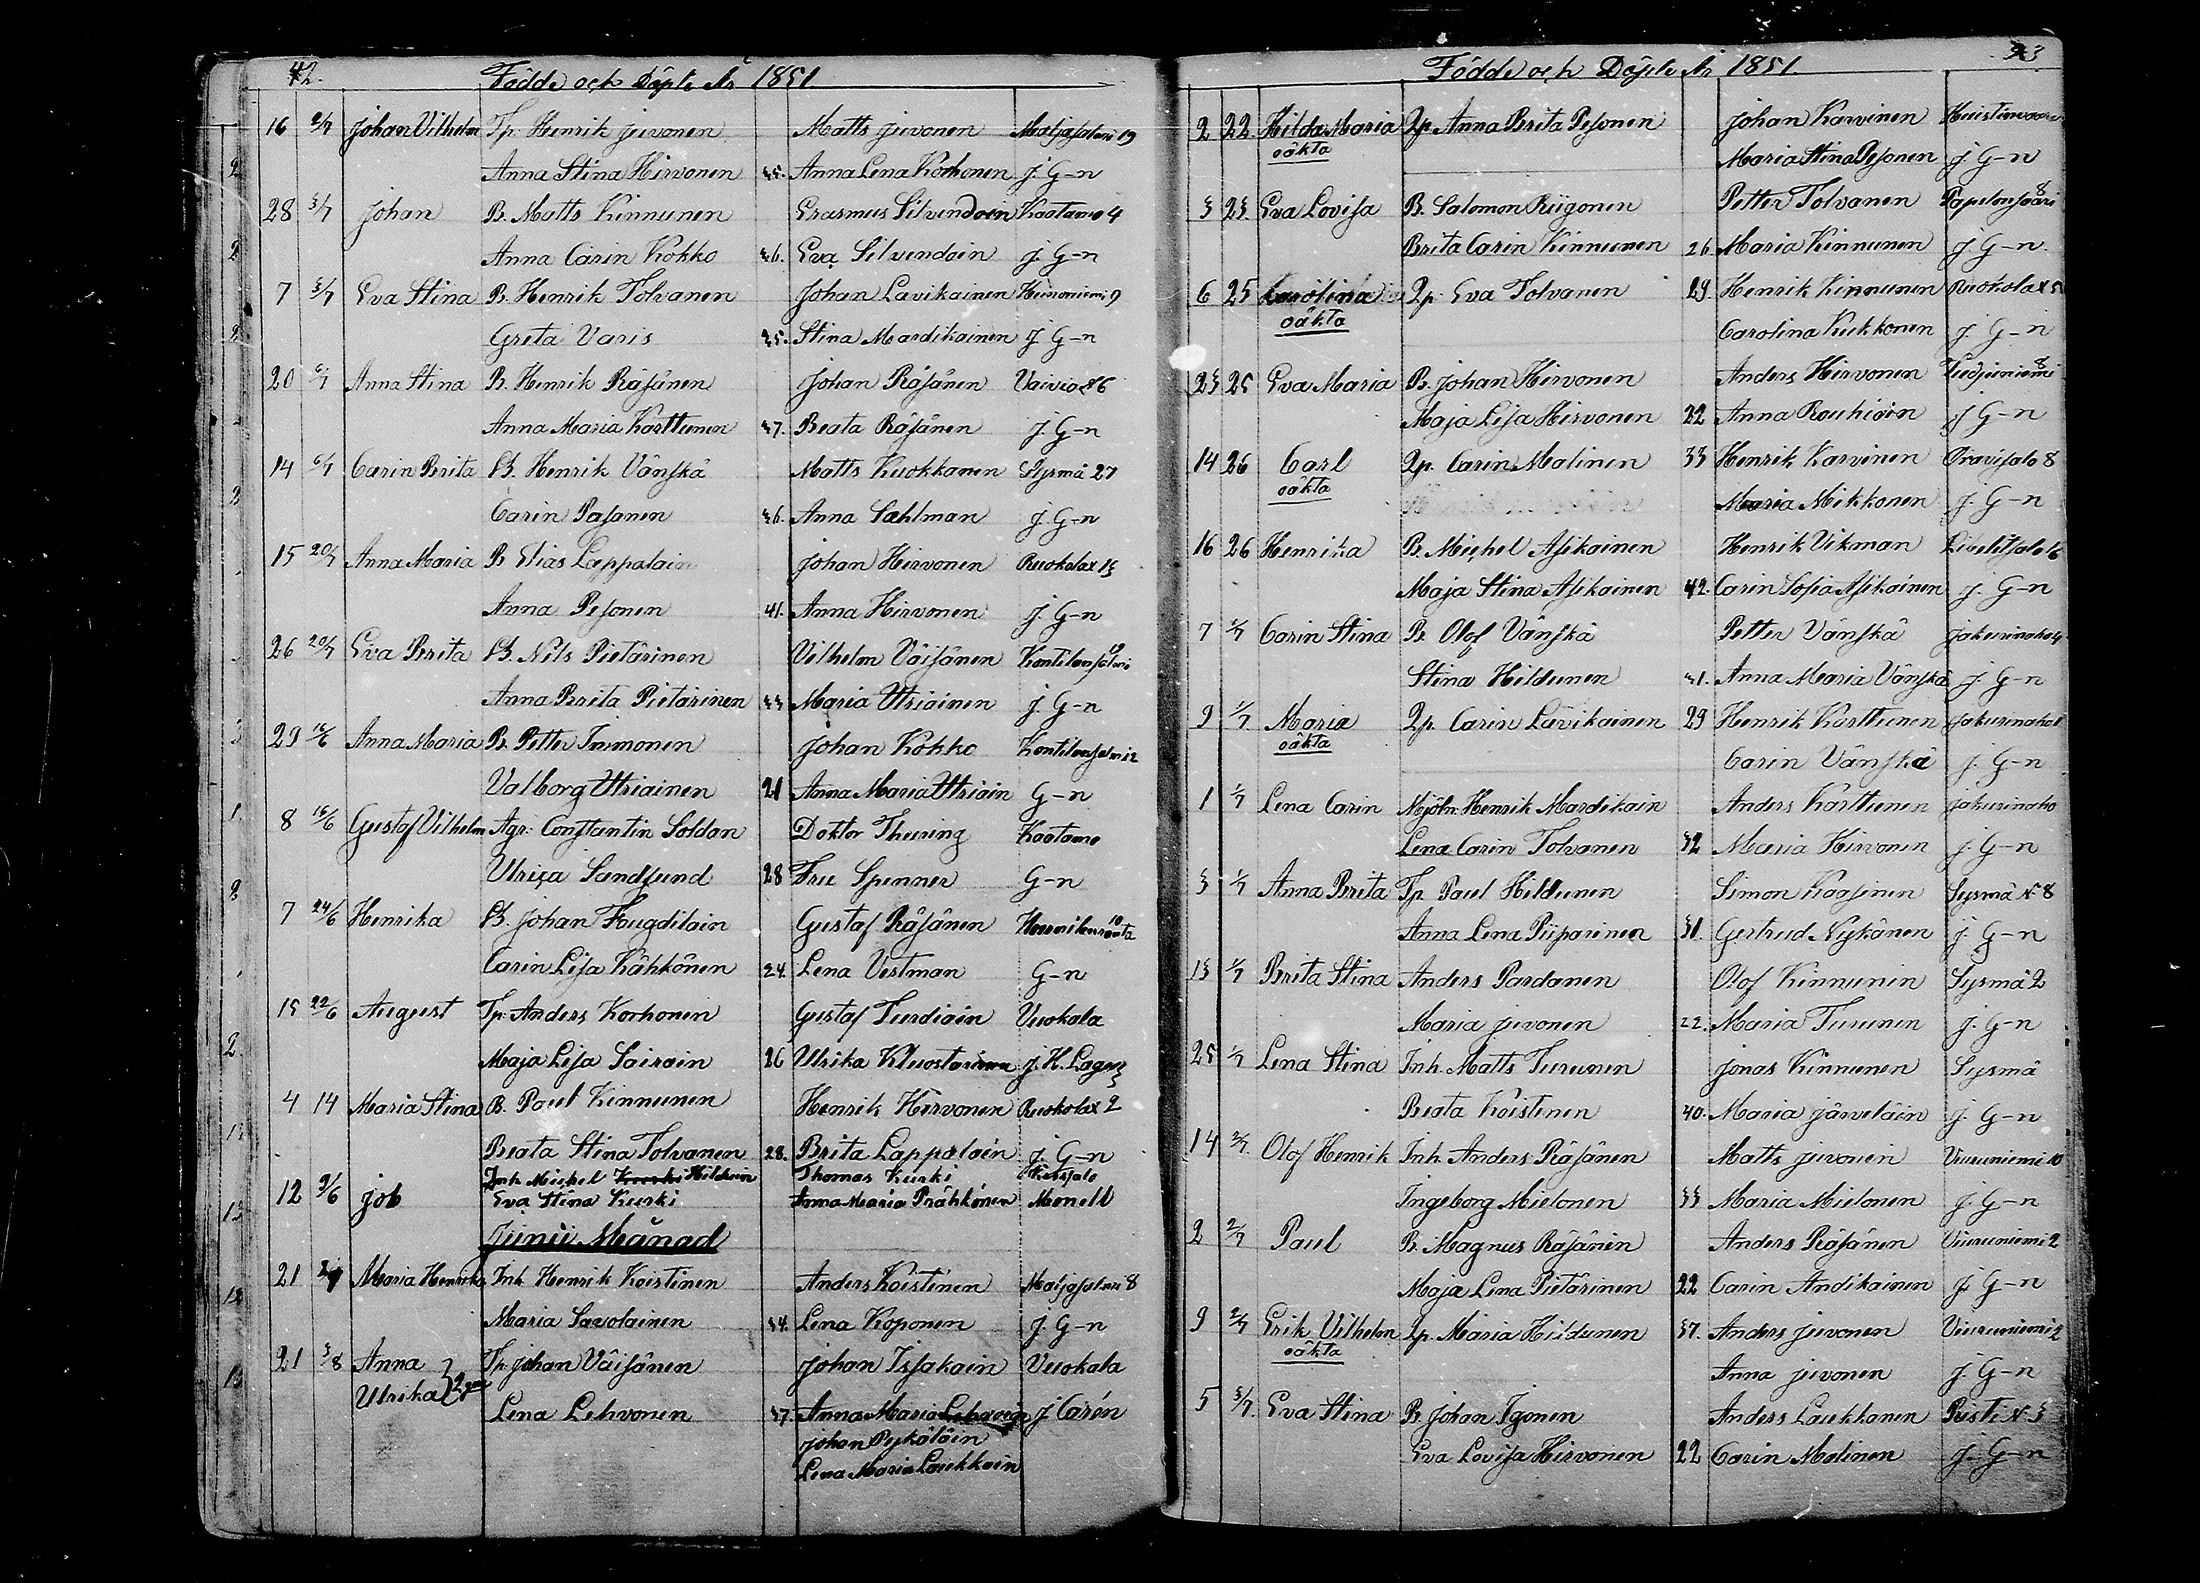 42.
Födde och Döpte År 1851.
16 2/7 Johan Vilhelm Tp. Henrik Juvonen Matts Juvonen Maljasalmi 19
Anna Stina Hirvonen 35. Anna Lena Korhonen J. G-n
28 3/7 Johan B. Matts Kinnunen Erasmus Silvendoin Kaatamo 4
Anna Carin Kokko 36. Eva Silvendoin J. G-n
7 3/7 Eva Stina B. Henrik Tolvanen Johan Lavikainen 9
Greta Varis 25. Stina Mardikainen J. G-n
20 6/7 Anna Stina B. Henrik Räsänen Johan Räsänen Vaivio 6
Anna Maria Karttunen 37. Beata Räsänen J. G-n
14 6/7 Carin Brita B. Henrik Vänskä Matts Kuokkanen Sysmä 27
Carin Pasanen 36. Anna Sahlman J. G-n
15 20/7 Anna Maria B. Elias Lappalain Johan Hirvonen Ruokolax 13
Anna Pesonen 41. Anna Hirvonen J. G-n
26 20/7 Eva Brita B. Nils Pietärinen Vilhelm Väisänen Kontilonsalmi
Anna Brita Pietärinen 33 Maria Utriainen J. G-n
29 16/6 Anna Maria B. Petter Immonen Johan Kokko Kontilonsalmi 2
Valborg Utriainen 21 Anna Maria Utriain G-n
8 16/6 Gustaf Vilhelm Agr. Constantin Soldan Doktor Thuring Kaatamo
Ulrica Sandsund 28 Fru Spenner G-n
7 24/6 Henrika B. Johan Fougdilain Gustaf Räsänen 10
Carin Lisa Kähkönen 24. Lena Vestman G-n
15 22/6 August Tp. Anders Korhonen Gustaf Turdiain Vuokala
Maja Lisa Sairain 26 Ulrika J. H. Lagus
4 14 Maria Stina B. Paul Kinnunen Henrik Hirvonen Ruokolax 2
Beata Stina Tolvanen 28. Brita Lappalain J. G-n
Inh. Michel Kurki Hilduin Thomas Kurki
12 9/6 Job Eva Stina Kurki Anna Maria Prähkönen Monell
Junii Månad
21 Maria Henrika Inh. Henrik Koistinen Anders Koistinen Maljasalmi 8
Maria Savolainen 34. Lena Koponen J. G-n
21 3/8 Anna Tp. Johan Väisänen Johan Issakain Vuokala
Ulrika } 2
Lena Lehvonen 37. Anna Maria Lehvoin J Carén
Johan Pykäläin
Lena Maria Laukkain
23
Födde och Döpte År 1851.
2 22. Hilda Maria Qp. Anna Brita Pesonen Johan Karvinen
oäkta
Maria Stina Pesonen J. G-n
3 23 Eva Lovisa B. Salomon Riigonen Petter Tolvanen Papelonsaari 8
Brita Carin Kinnunen 26. Maria Kinnunen J. G-n.
6 25 Carolina Qp. Eva Tolvanen 29. Henrik Kinnunen Ruokolax 5
oäkta
Carolina Kukkonen J. G-n
23 25 Eva Maria B. Johan Hirvonen Anders Hirvonen 8
Maja Lisa Hirvonen 22 Anna Rouhiain J G-n
14 26 Carl Qp. Carin Malinen 33 Henrik Karvinen Oravisalo 8
oäkta
Maria Mikkonen J. G-n
16 26 Henrika B. Michel Asikainen Henrik Vikman
Maja Stina Asikainen 42. Carin Sofia Asikainen J. G-n
7 1/7 Carin Stina B. Olof Vänskä Petter Vänskä Jakurinaho 4
Stina Hildunen 31. Anna Maria Vänskä J. G-n
9 1/7. Maria Qp. Carin Lavikainen 29 Henrik Karttunen Jakurinaho 1
oäkta
Carin Vänskä J. G-n
1 1/7 Lena Carin Mjöln. Henrik Mardikain Anders Karttunen Jakurinaho
Lena Carin Tolvanen 32 Maria Hirvonen J. G-n
3 1/7 Anna Brita Tp. Paul Hildunen Simon Kaasinen Sysmä N 8
Anna Lena Piiparinen 31. Gertrud Nykänen J. G-n
13 1/7 Brita Stina Anders Pardanen Olof Kinnunen Sysmä 2
Maria Juvonen 22. Maria Turunen J. G-n
25 1/7 Lena Stina Inh. Matts Turunen Jonas Kinnunen Sysmä
Beata Koistinen 40. Maria Järveläin J. G-n
14 2/7 Olof Henrik Inh. Anders Räsänen Matts Juvonen Viuruniemi 10
Ingeborg Mielonen 33 Maria Mielonen J. G-n
2 2/7 Paul B. Magnus Räsänen Anders Räsänen Viuruniemi 2
Maja Lena Pietärinen 22 Carin Andikainen J. G-n
9 2/7 Erik Vilhelm Qp. Maria Hildunen 37. Anders Juvonen Viuruniemi 2
oäkta
Anna Juvonen J. G-n
5 3/7. Eva Stina B. Johan Igonen Anders Laukkanen N 3
Eva Lovisa Hirvonen 22 Carin Malinen J. G-n